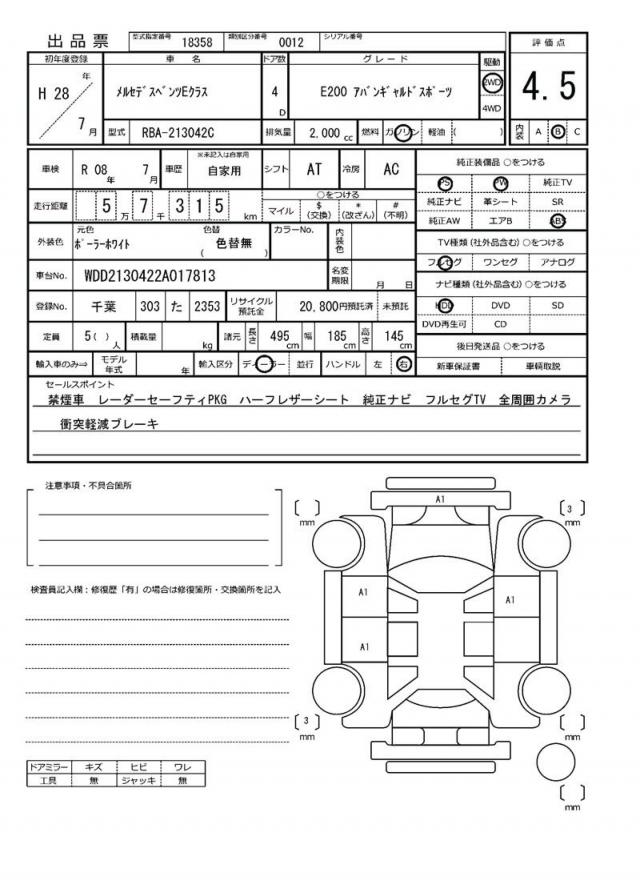 出品票 型式指定番号 18358 類別区分番号 0012 シリアル番号
初年度登録 車 名 ドア数 グレード 駆動 評価点
H 28 年 7 月 メルセデスベンツEクラス 4 D E200 アバンギャルドスポーツ 2WD 4WD 4.5
型式 RBA-213042C 排気量 2,000 cc 燃料 ガソリン 軽油 ( ) 内装 A B C
車検 R 08 年 7 月 車歴 ※未記入は自家用 自家用 シフト AT 冷房 AC 純正装備品 ○をつける
PS PW 純正TV
走行距離 5 万 7 千 3 1 5 km ○をつける マイル $ (交換) * (改ざん) # (不明) 純正ナビ 革シート SR
純正AW エアB ABS
外装色 元色 ポーラーホワイト 色替 ( 色替無 ) カラーNo. 内装色 TV種類 (社外品含む) ○をつける
フルセグ ワンセグ アナログ
車台No. WDD2130422A017813 名変期限 月 日 ナビ種類 (社外品含む) ○をつける
登録No. 千葉 303 た 2353 リサイクル預託金 20,800円預託済 未預託 HDD DVD SD
DVD再生可 CD
定員 5( ) 人 積載量 kg 諸元 長さ 495 cm 幅 185 cm 高さ 145 cm 後日発送品 ○をつける
輸入車のみ⇒ モデル年式 年 輸入区分 ディーラー 並行 ハンドル 左 右 新車保証書 車輌取説
セールスポイント
禁煙車 レーダーセーフティPKG ハーフレザーシート 純正ナビ フルセグTV 全周囲カメラ
衝突軽減ブレーキ
注意事項・不具合箇所
検査員記入欄：修復歴「有」の場合は修復箇所・交換箇所を記入
A1
[ ] mm
[ 3 ] mm
A1
A1
A1
[ 3 ] mm
[ ] mm
[ ] mm
ドアミラー キズ ヒビ ワレ
工具 無 ジャッキ 無